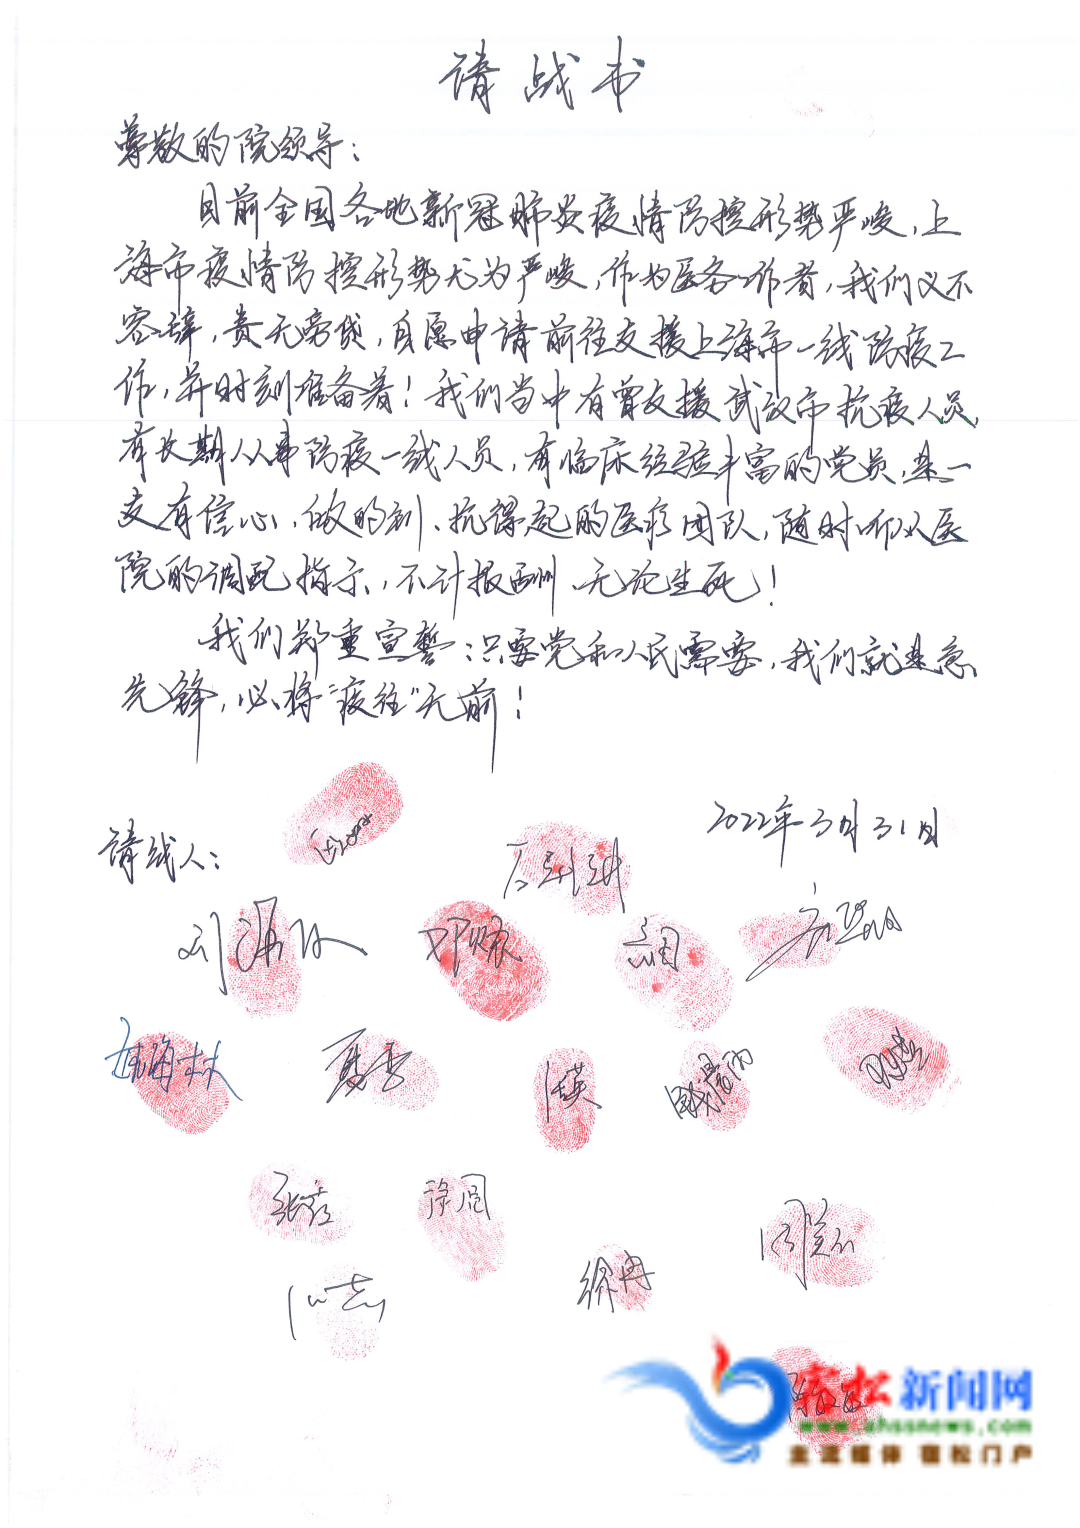 请战书
尊敬的院领导：
目前全国各地新冠肺炎疫情防控形势严峻，上
海市疫情防控形势尤为严峻，作为医务工作者，我们义不
容辞，责无旁贷，自愿申请前往支援上海市一线防疫工
作，并时刻准备着！我们当中有曾支援武汉市抗疫人员，
有长期从事防疫一线人员，有临床经验丰富的党员，是一
支有信心、做的到、抗得起的医疗团队，随时听从医
院的调配指示，不计报酬、无论生死！
我们郑重宣誓：只要党和人民需要，我们就是急
先锋，必将“疫往”无前！
2022年3月31日
请战人：
夏季
张蓉
徐冉
宿松新闻网
www.ahssnews.com
主流媒体 宿松门户